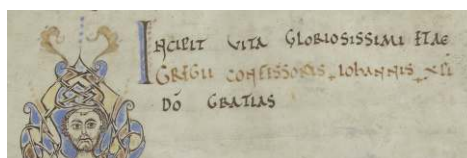 INCIPIT VITA GLORIOSISSIMI
CONFESSORIS IOHANNIS
DO GRATIAS